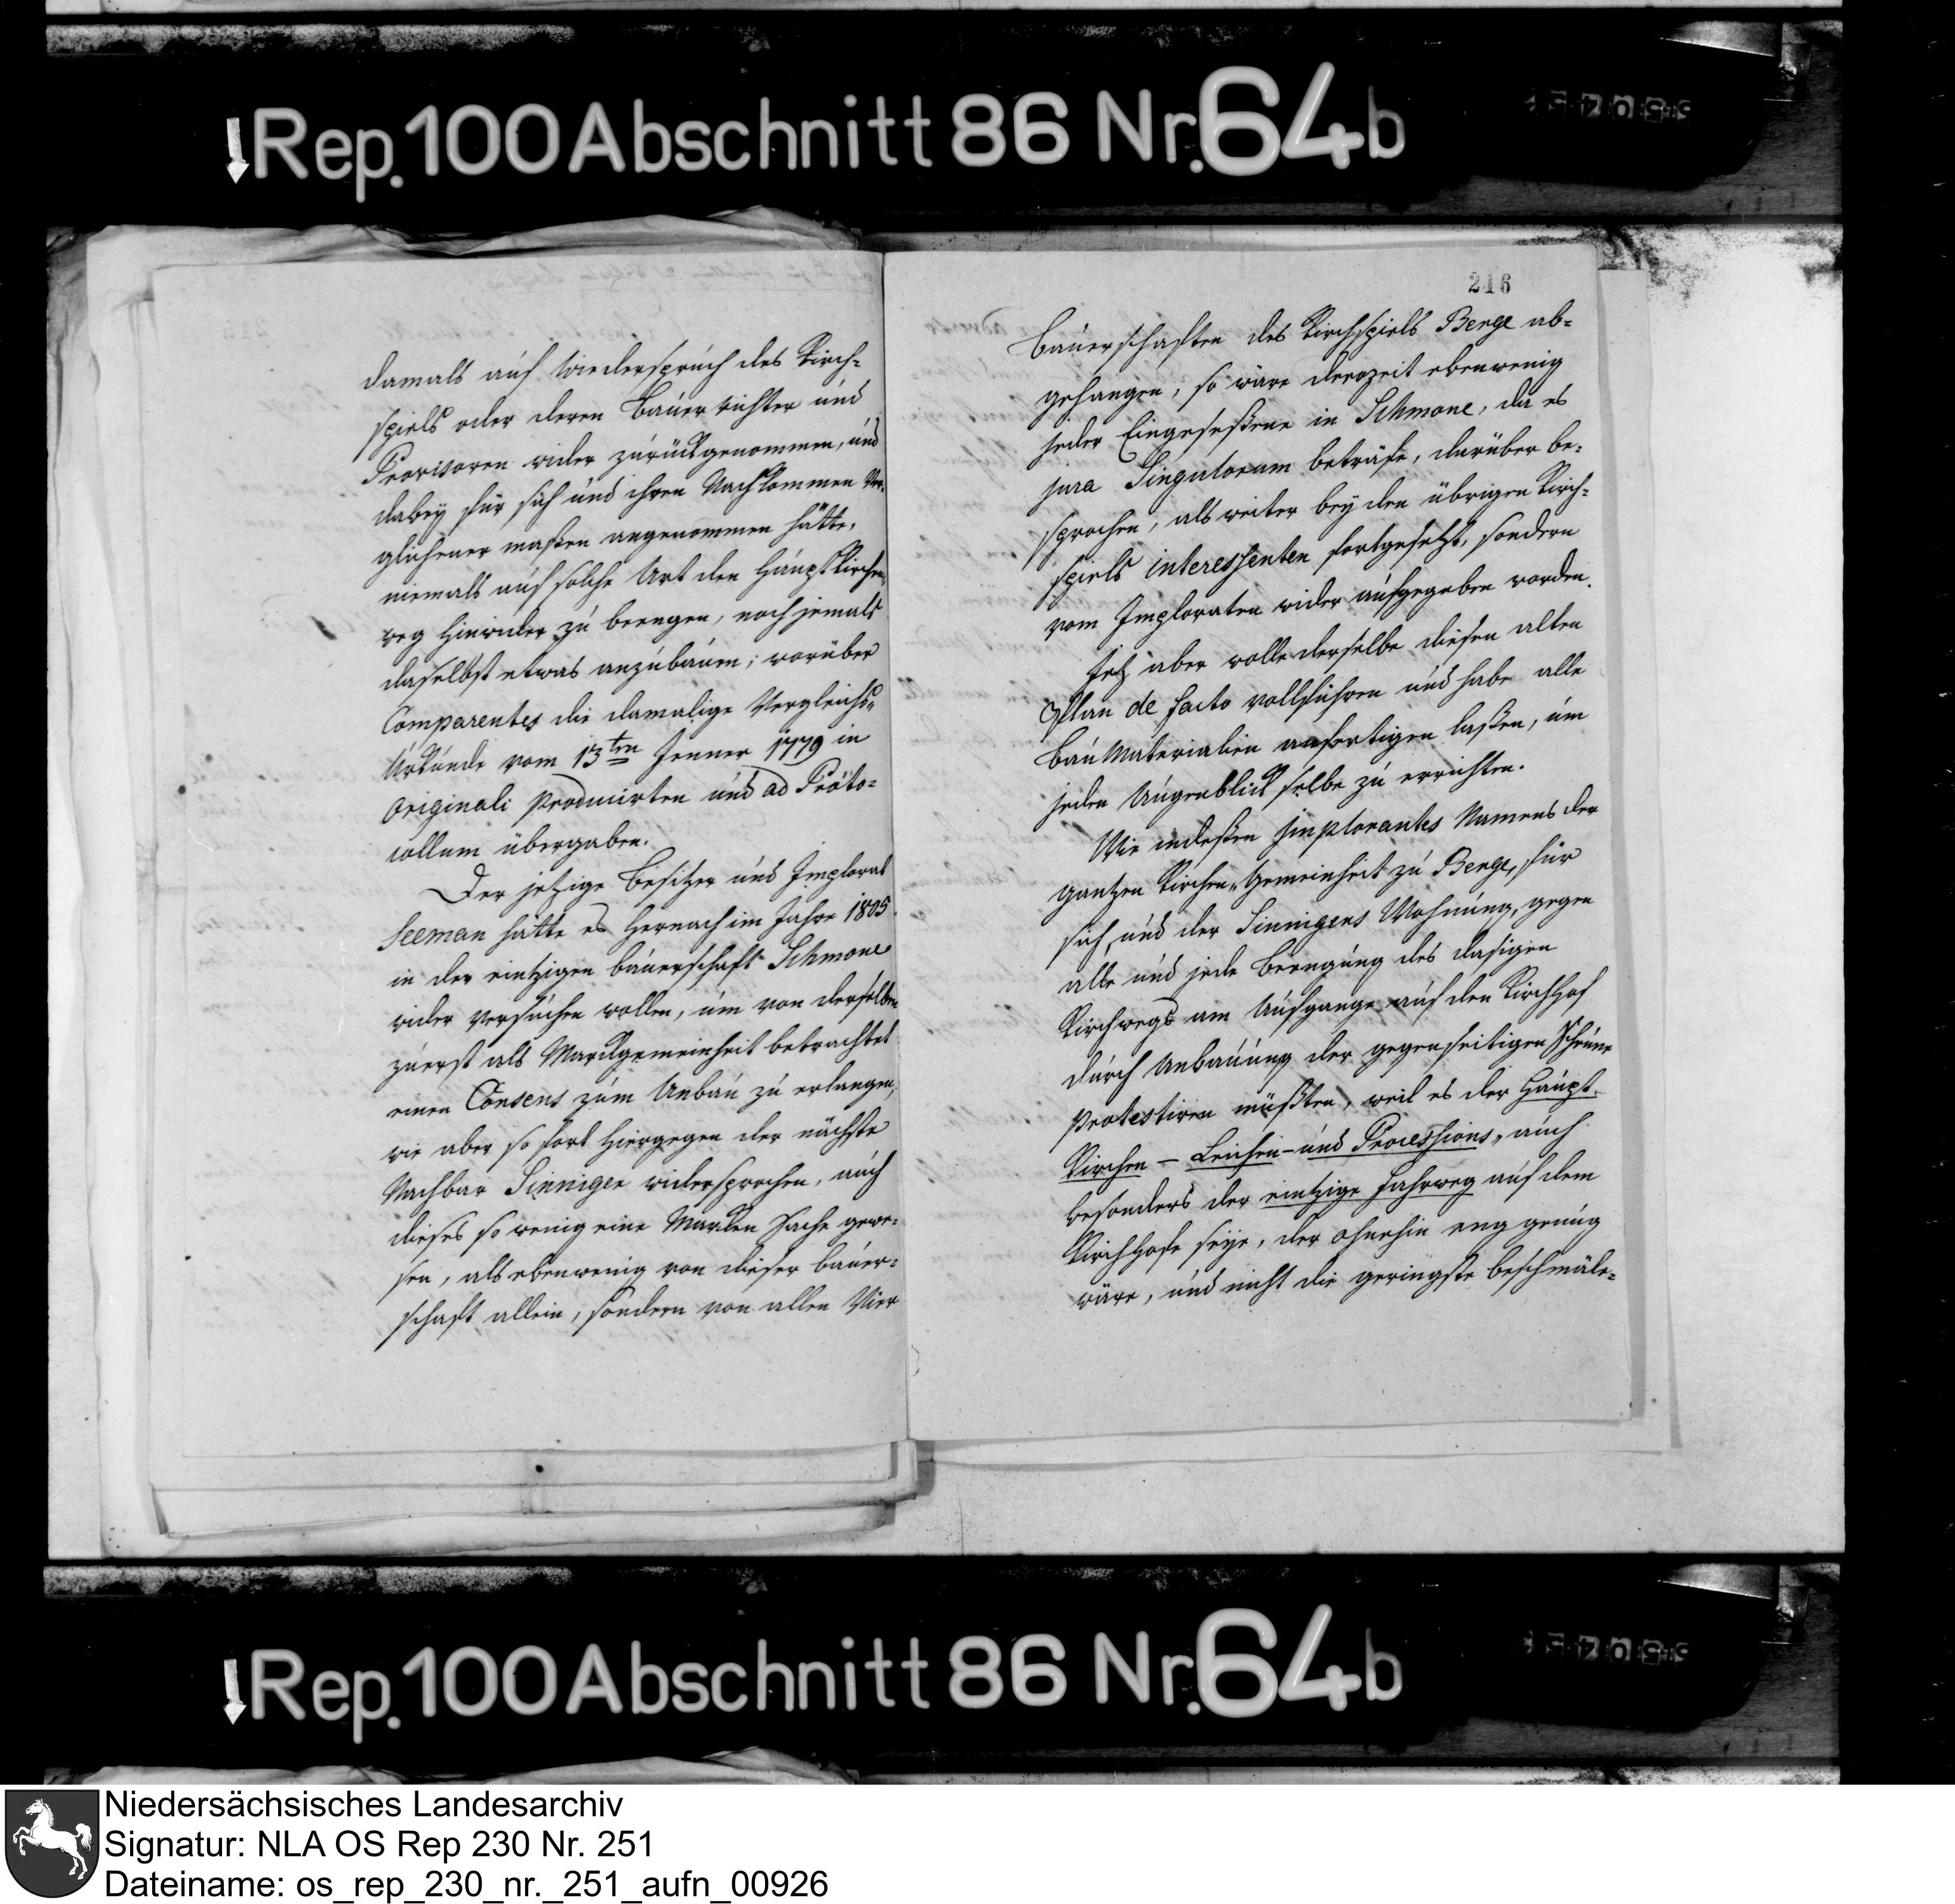 Rep. 100 Abschnitt 86 Nr. 64b
damals auf Wiederspruch des Kirch-
spiels oder deren Bauerrichter und
Provisoren wider zurückgenommen, und
dabey für sich und ihren Nachkommen Ver-
glichener maßen angenommen hätte,
niemals auf solche Art den HauptKirchen-
weg hinwider zu beengen, noch jemals
daselbst etwas anzubauen; worüber
Comparentes die damalige Vergleichs-
Urkunde vom 13ten Jenner 1779 in
originali producirten und ad Proto-
collum übergaben.
Der jetzige Besitzer und Implorat
Seeman hätte es hernach im Jahre 1805
in der eintzigen bauerschaft Schmone
wider versuchen wollen, um von derselben
zuerst als Markgemeinheit betrachtet
einen Consens zum Anbau zu erlangen,
wie aber so fort hiergegen der nächste
Nachbar Sinniger widersprochen, auch
dieses so wenig eine Marken Sache gewe-
sen, als ebenwenig von dieser bauer-
schaft allein, sondern von allen Vier
216
bauerschaften des Kirchspiels Berge ab-
gehangen, so wäre derozeit ebenwenig
jeder Eingeseßene in Schmone, da es
jura Singulorum beträfe, darüber be-
sprochen, als weiter bey den übrigen Kirch-
spiels interessenten fortgesetzt, sondern
vom Imploraten wider aufgegeben worden.
Jetz aber wolle derselbe diesen alten
Plan de facto vollführen und habe alle
Bau Materialien anfertigen laßen, um
jeden Augenblick selbe zu errichten.
Wie indeßen Implorantes Namens der
gantzen Kirchen-Gemeinheit zu Berge, für
sich, und der Sinnigers Wohnung, gegen
alle und jede Beengung des dasigen
Kirchwegs am Aufgange auf den Kirchhof
durch Anbauung der gegenseitigen Scheune
protestiren müßten, weil es der Haupt-
Kirchen- Leichen- und Processions, auch
besonders der eintzige Fahrweg auf dem
Kirchhofe seye, der ohnehin eng genug
wäre, und nicht die geringste beschmäle-
Rep. 100 Abschnitt 86 Nr. 64b
Niedersächsisches Landesarchiv
Signatur: NLA OS Rep 230 Nr. 251
Dateiname: os_rep_230_nr._251_aufn_00926